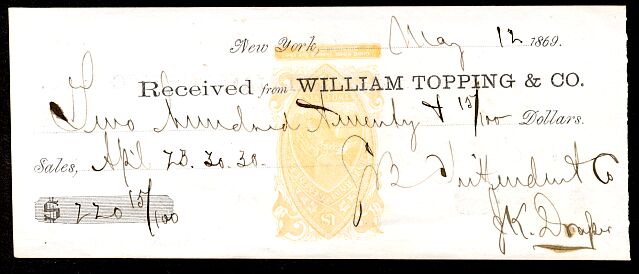 New York, May 12 1869.
Received from WILLIAM TOPPING & CO.
Two hundred Twenty & 15/100 Dollars.
Sales, Apl 23. 30. 30.
$ 220 15/100
Co
J.K. Draper